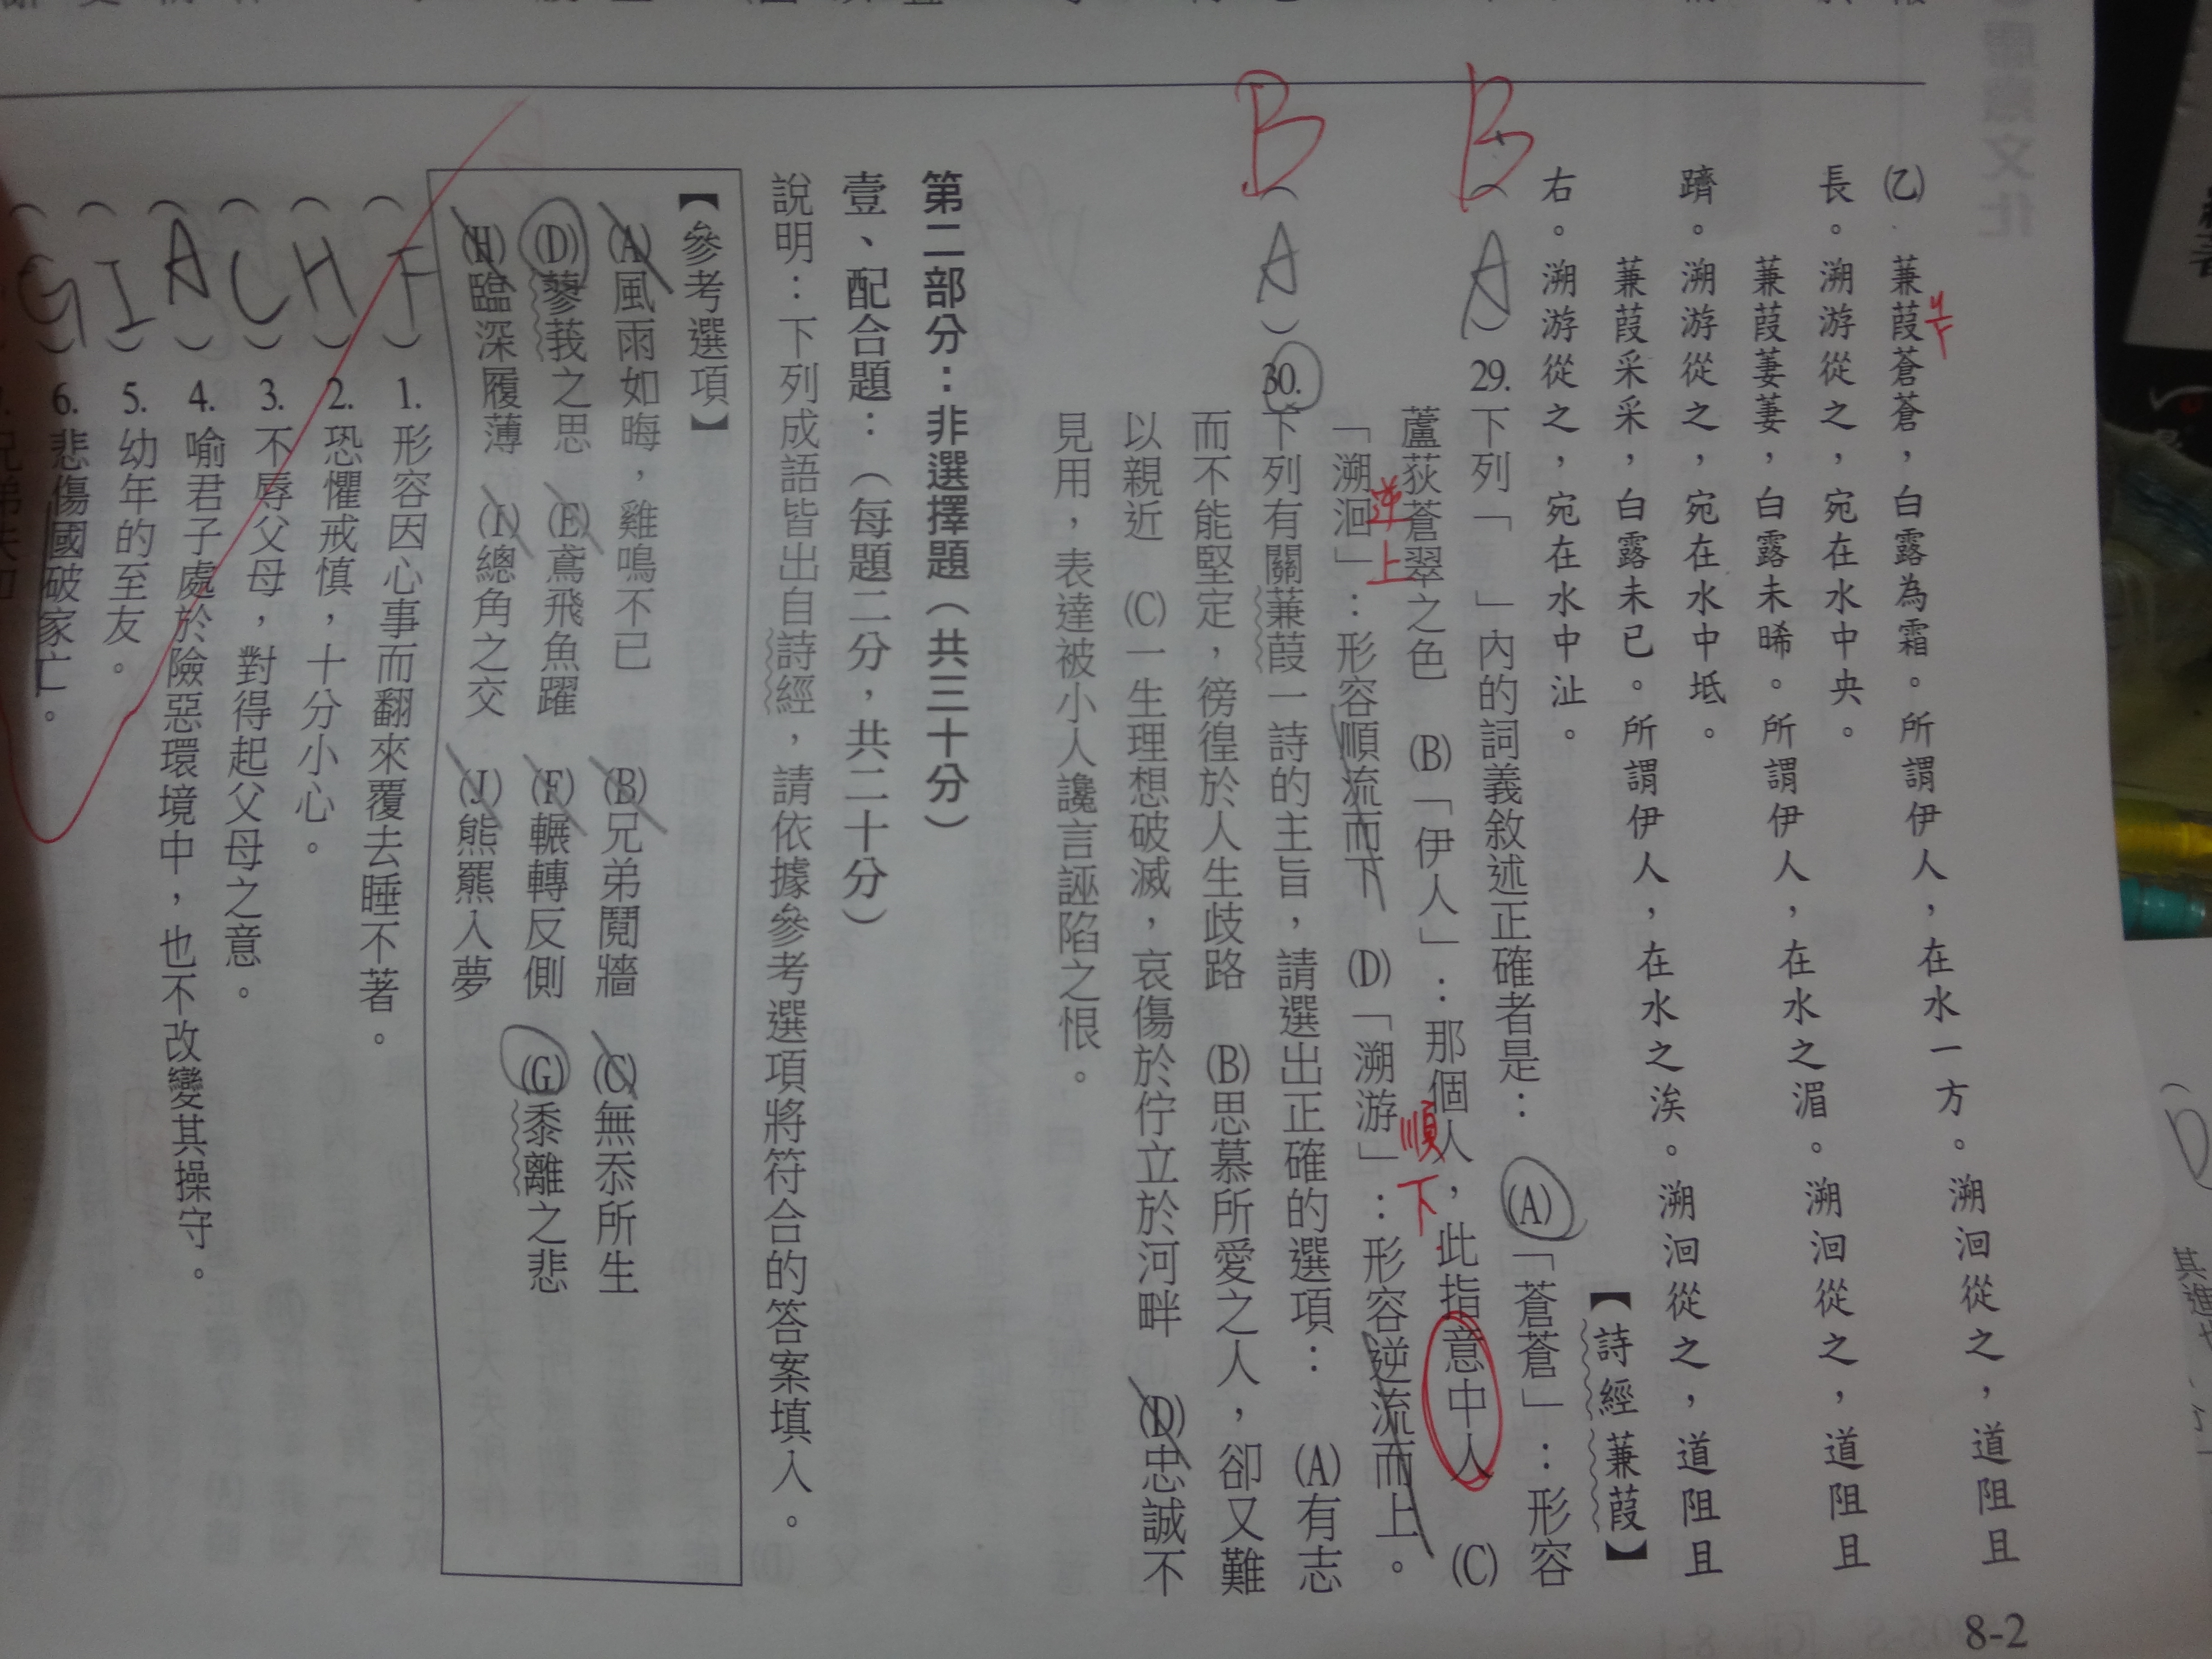 8-2
㈡ 蒹葭蒼蒼，白露為霜。所謂伊人，在水一方。溯洄從之，道阻且
長。溯游從之，宛在水中央。
蒹葭萋萋，白露未晞。所謂伊人，在水之湄。溯洄從之，道阻且
躋。溯游從之，宛在水中坻。
蒹葭采采，白露未已。所謂伊人，在水之涘。溯洄從之，道阻且
右。溯游從之，宛在水中沚。
【詩經 蒹葭】
B
(A) 29. 下列「 」內的詞義敘述正確者是： (A)「蒼蒼」：形容
蘆荻蒼翠之色 (B)「伊人」：那個人，此指意中人 (C)
逆上
順下
「溯洄」：形容順流而下 (D)「溯游」：形容逆流而上。
B
(A) 30. 下列有關蒹葭一詩的主旨，請選出正確的選項： (A)有志
而不能堅定，徬徨於人生歧路 (B)思慕所愛之人，卻又難
以親近 (C)一生理想破滅，哀傷於佇立於河畔 (D)忠誠不
見用，表達被小人讒言誣陷之恨。
第二部分：非選擇題（共三十分）
壹、配合題：（每題二分，共二十分）
說明：下列成語皆出自詩經，請依據參考選項將符合的答案填入。
【參考選項】
(A)風雨如晦，雞鳴不已 (B)兄弟鬩牆 (C)無忝所生
(D)蓼莪之思 (E)鳶飛魚躍 (F)輾轉反側 (G)黍離之悲
(H)臨深履薄 (I)總角之交 (J)熊羆入夢
(F) 1. 形容因心事而翻來覆去睡不著。
(H) 2. 恐懼戒慎，十分小心。
(C) 3. 不辱父母，對得起父母之意。
(A) 4. 喻君子處於險惡環境中，也不改變其操守。
(I) 5. 幼年的至友。
(G) 6. 悲傷國破家亡。